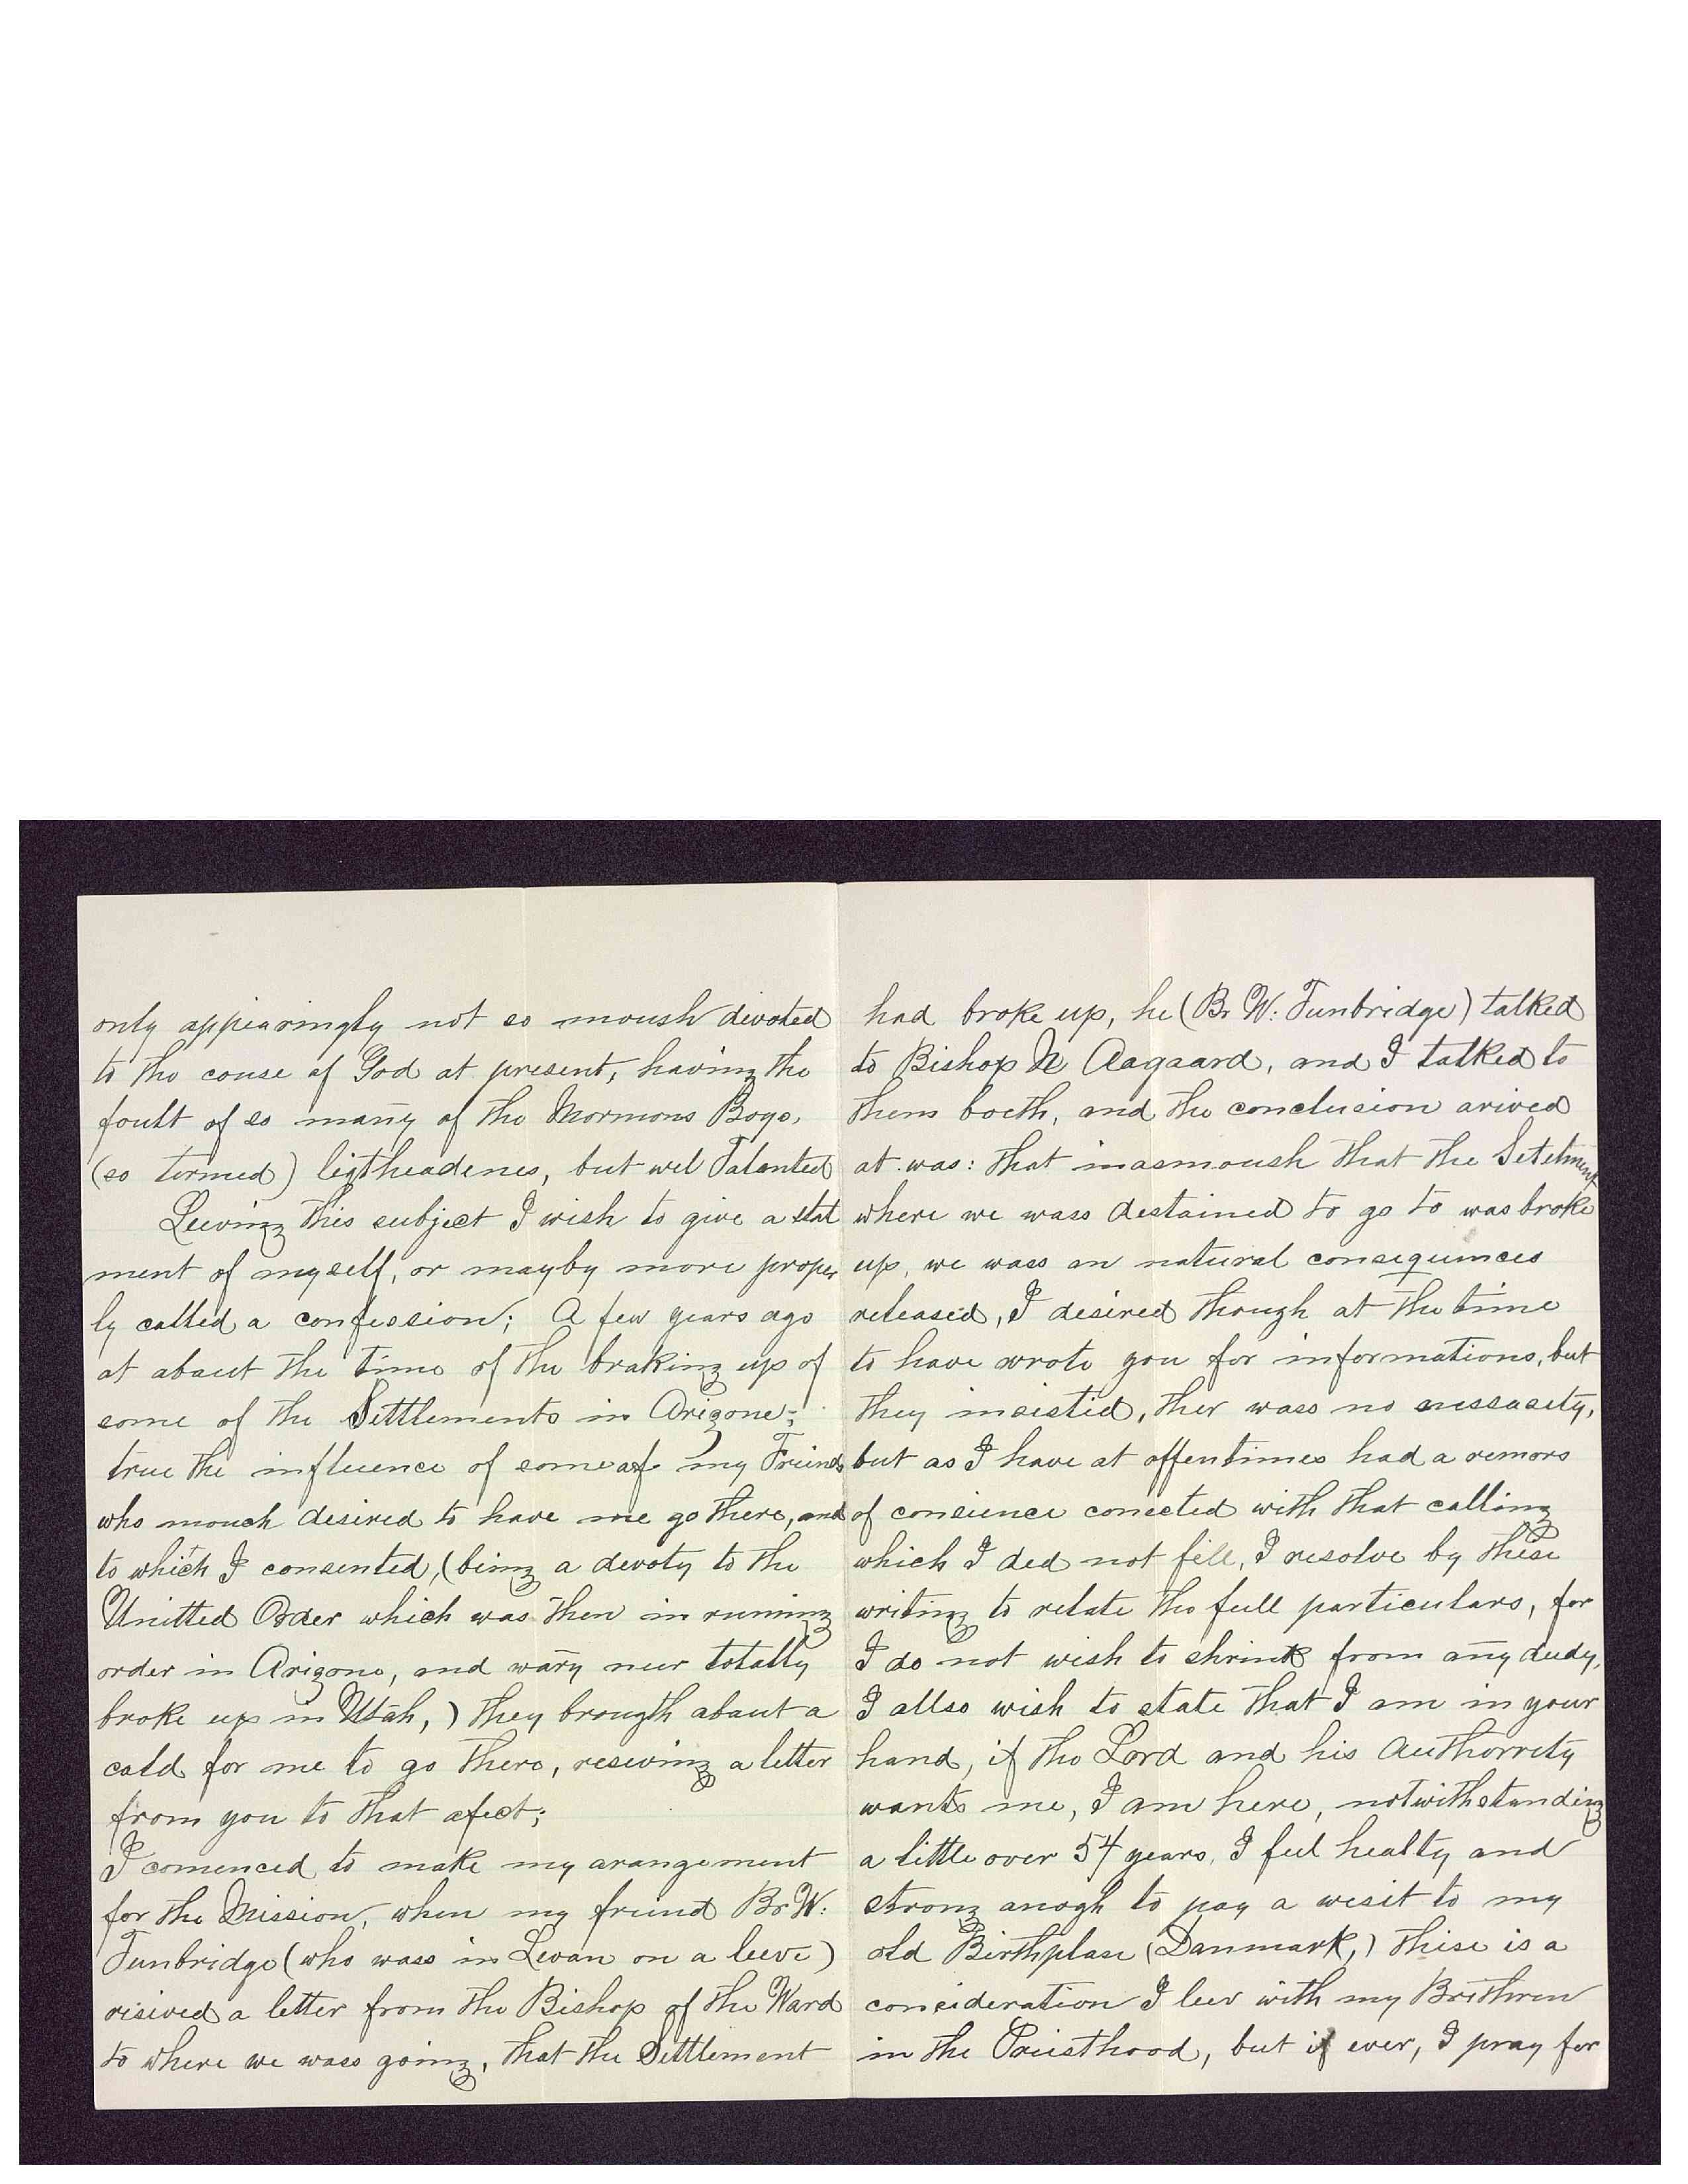 only appiearingly not so moush devoted
to the couse of God at present, having the
foult of so many of the Mormons Boys,
(so termed) ligtheadenes, but wel Talanted
Leeving this subject I wish to give a stat
ment of myself, or mayby more proper
ly called a confession; A few years ago
at abaut the time of the braking up of
some of the Settlements in Arizone;
true the influence of some of my Friends
who mouch desired to have me go there, and
to which I consented, (being a devoty to the
Unitted Order which was then in running
order in Arizone, and wary neer totally
broke up in Utah,) they brougth abaut a
cald for me to go there, reseiving a letter
from you to that afect;
I comenced to make my arangement
for the Mission, when my friend Br W:
Tunbridge (who wass in Levan on a leeve)
risived a letter from the Bishop of the Ward
to where we wass going, that the Settlement
had broke up, he (Br W: Tunbridge) talked
to Bishop N Aagaard, and I talked to
them boeth, and the conclusion arived
at was: that inasmoush that the Setelment
where we wass destained to go to was broke
up, we wass an natural consequinces
released, I desired though at the time
to have wrote you for informations, but
they insistid, ther wass no nessasity,
but as I have at offentimes had a remors
of consience conected with that calling
which I ded not fill, I resolve by these
writing to relate the full particulars, for
I do not wish to shrink from any dudy,
I allso wish to state that I am in your
hand, if the Lord and his Authorrety
wants me, I am here, notwithstanding
a little over 54 years, I feel healty and
strong anogh to pay a wesit to my
old Birthplase (Danmark,) thise is a
consideration I leev with my Brithren
in the Priesthood, but if ever, I pray for